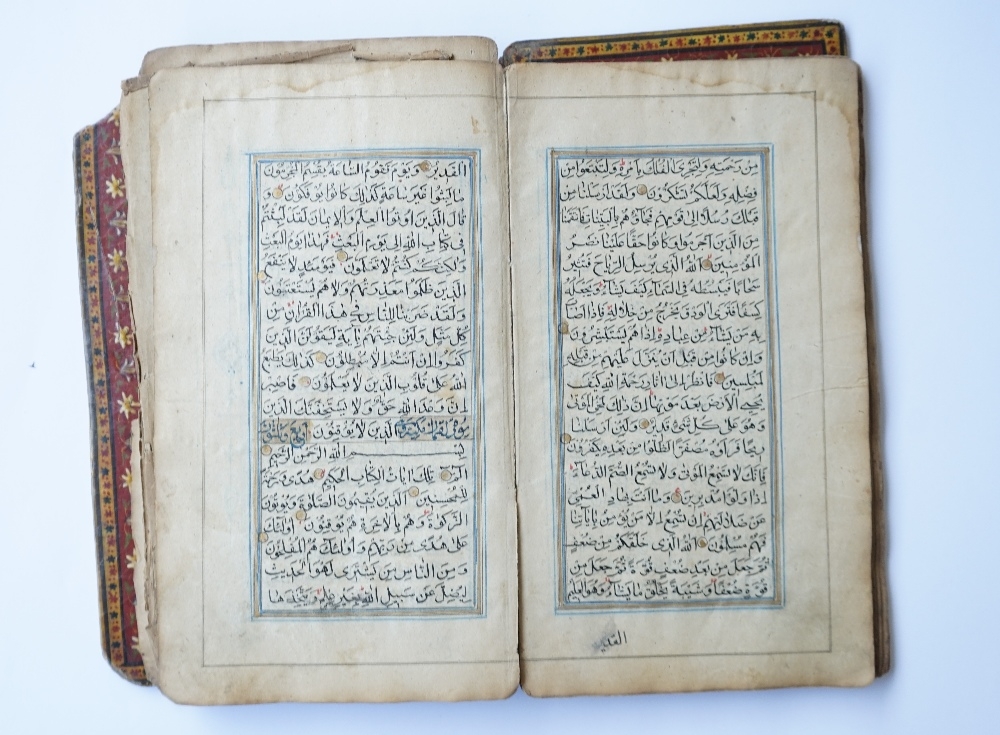 من رحمته ولتجري الفلك بامره ولتبتغوا من
فضله ولعلكم تشكرون ولقد ارسلنا من
قبلك رسلا الى قومهم فجاؤهم بالبينات فانتقمنا
من الذين اجرموا وكان حقا علينا نصر
المؤمنين الله الذي يرسل الرياح فتثير
سحابا فيبسطه في السماء كيف يشاء ويجعله
كسفا فترى الودق يخرج من خلاله فاذا اصاب
به من يشاء من عباده اذا هم يستبشرون
وان كانوا من قبل ان ينزل عليهم من قبله
لمبلسين فانظر الى اثار رحمة الله كيف
يحيي الارض بعد موتها ان ذلك لمحي الموتى
وهو على كل شئ قدير ولئن ارسلنا
ريحا فراوه مصفرا لظلوا من بعده يكفرون
فانك لا تسمع الموتى ولا تسمع الصم الدعاء
اذا ولوا مدبرين وما انت بهاد العمي
عن ضلالتهم ان تسمع الا من يؤمن باياتنا
فهم مسلمون الله الذي خلقكم من ضعف
ثم جعل من بعد ضعف قوة ثم جعل من
قوة ضعفا وشيبة يخلق ما يشاء وهو العليم
القدير
القدير ويوم تقوم الساعة يقسم المجرمون
ما لبثوا غير ساعة كذلك كانوا يؤفكون
قال الذين اوتوا العلم والايمان لقد لبثتم
في كتاب الله الى يوم البعث فهذا يوم البعث
ولكنكم كنتم لا تعلمون فيومئذ لا تنفع
الذين ظلموا معذرتهم ولا هم يستعتبون
ولقد ضربنا للناس في هذا القران من
كل مثل ولئن جئتهم باية ليقولن الذين
كفروا ان انتم الا مبطلون كذلك يطبع
الله على قلوب الذين لا يعلمون فاصبر
ان وعد الله حق ولا يستخفنك الذين
سورة لقمان الذين لا يوقنون
بسم الله الرحمن الرحيم
الم تلك ايات الكتاب الحكيم هدى ورحمة
للمحسنين الذين يقيمون الصلوة ويؤتون
الزكوة وهم بالاخرة هم يوقنون اولئك
على هدى من ربهم واولئك هم المفلحون
ومن الناس من يشتري لهو الحديث
ليضل عن سبيل الله بغير علم ويتخذها